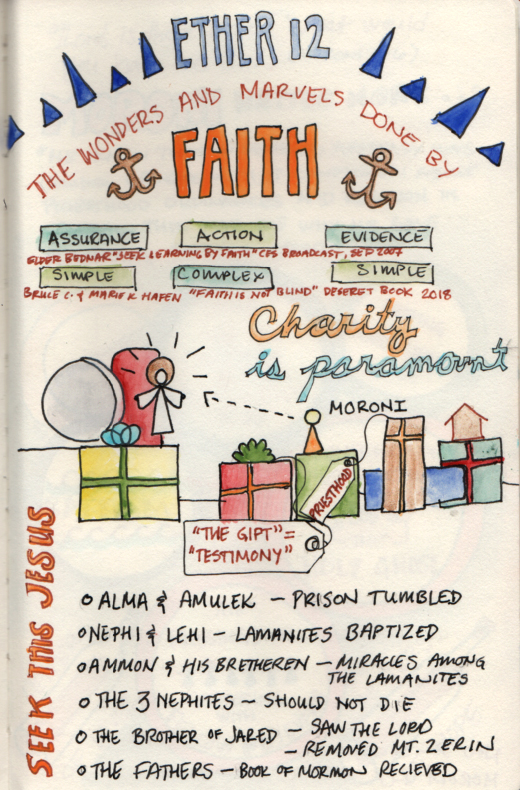 ETHER 12
THE WONDERS AND MARVELS DONE BY
FAITH
ASSURANCE ACTION EVIDENCE
ELDER BEDNAR "SEEK LEARNING BY FAITH" CES BROADCAST, SEP 2007
SIMPLE COMPLEX SIMPLE
BRUCE C. & MARIE K HAFEN "FAITH IS NOT BLIND" DESERET BOOK 2018
Charity
is paramount
MORONI
PRIESTHOOD
"THE GIFT" =
"TESTIMONY"
SEEK THIS JESUS
o ALMA & AMULEK - PRISON TUMBLED
o NEPHI & LEHI - LAMANITES BAPTIZED
o AMMON & HIS BRETHEREN - MIRACLES AMONG
THE LAMANITES
o THE 3 NEPHITES - SHOULD NOT DIE
o THE BROTHER OF JARED - SAW THE LORD
- REMOVED MT. ZERIN
o THE FATHERS - BOOK OF MORMON RECIEVED